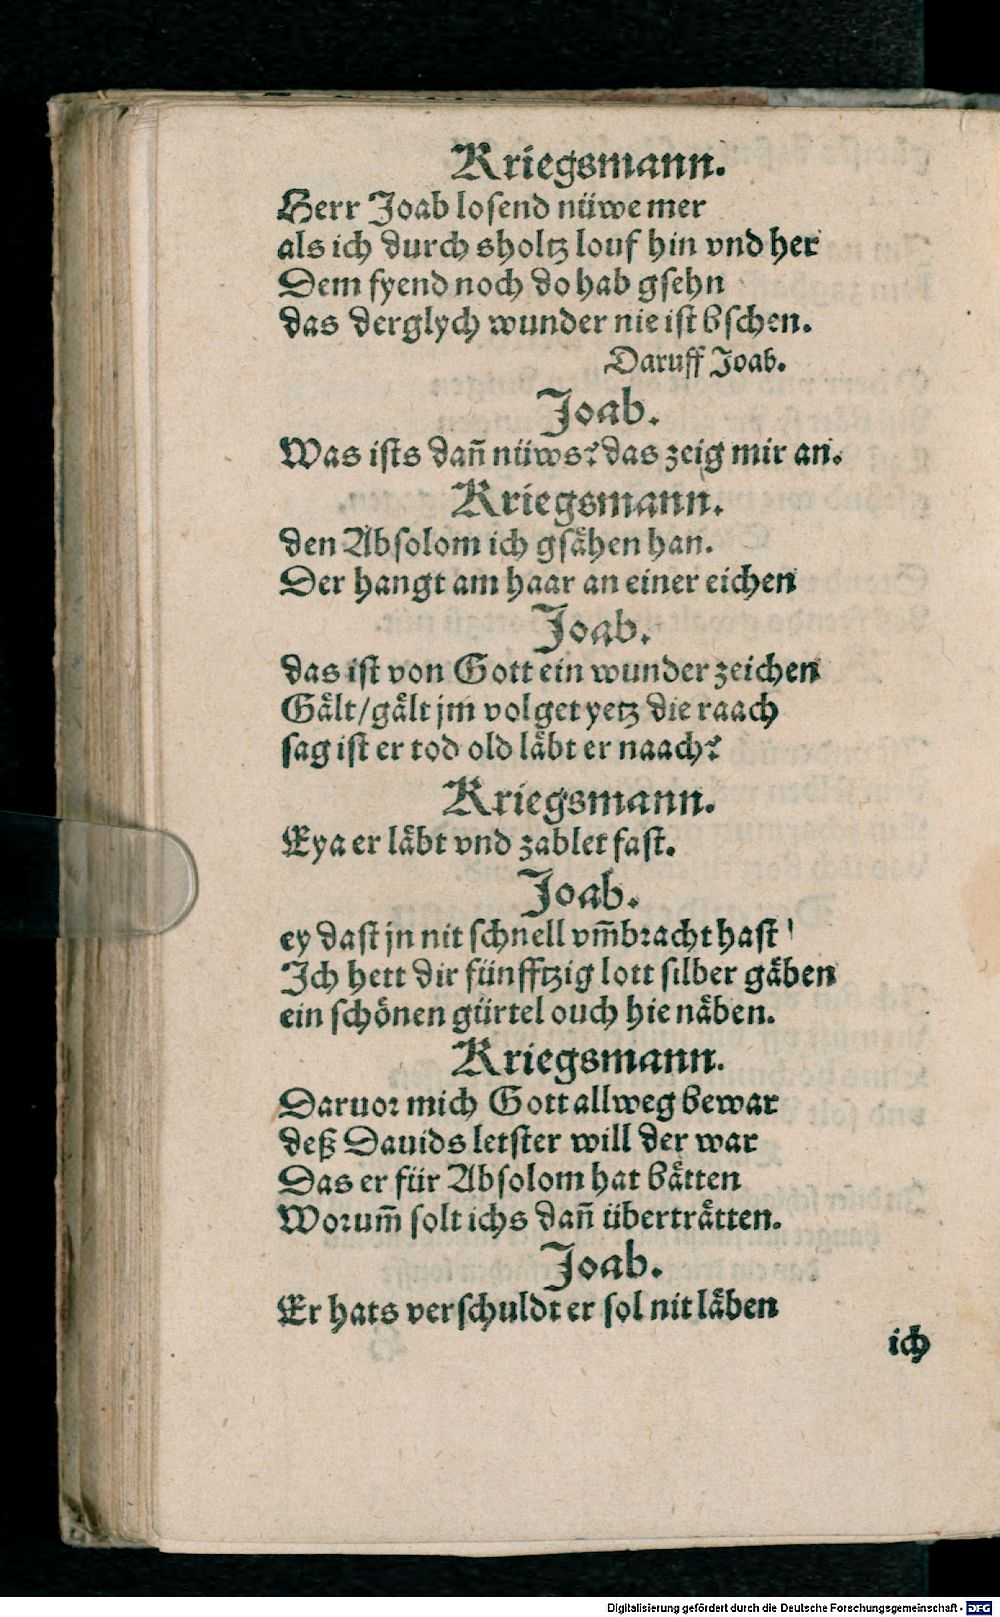 Kriegsmann.
Herr Joab losend nüwe mer
als ich durch sholtz louf hin vnd her
Dem fyend noch do hab gsehn
das derglych wunder nie ist bschen.
Daruff Joab.
Joab.
Was ists dañ nüws? das zeig mir an.
Kriegsmann.
den Absolom ich gsåhen han.
Der hangt am haar an einer eichen
Joab.
das ist von Gott ein wunder zeichen
Gålt/gålt jm volget yetz die raach
sag ist er tod old låbt er naach?
Kriegsmann.
Eya er låbt vnd zablet fast.
Joab.
ey dast jn nit schnell vm̃bracht hast!
Ich hett dir fünfftzig lott silber gåben
ein schönen gürtel ouch hie nåben.
Kriegsmann.
Daruor mich Gott allweg bewar
deß Dauids letster will der war
Das er für Absolom hat båtten
Worum̃ solt ichs dañ übertråtten.
Joab.
Er hats verschuldt er sol nit låben
ich
Digitalisierung gefördert durch die Deutsche Forschungsgemeinschaft - DFG